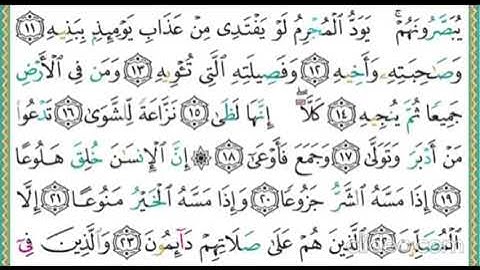 يُبَصَّرُونَهُمْ ۚ يَوَدُّ ٱلْمُجْرِمُ لَوْ يَفْتَدِى مِنْ عَذَابِ يَوْمِئِذٍۭ بِبَنِيهِ ١١
وَصَـٰحِبَتِهِۦ وَأَخِيهِ ١٢ وَفَصِيلَتِهِ ٱلَّتِى تُـْٔوِيهِ ١٣ وَمَن فِى ٱلْأَرْضِ
جَمِيعًا ثُمَّ يُنجِيهِ ١٤ كَلَّآ ۖ إِنَّهَا لَظَىٰ ١٥ نَزَّاعَةً لِّلشَّوَىٰ ١٦ تَدْعُوا۟
مَنْ أَدْبَرَ وَتَوَلَّىٰ ١٧ وَجَمَعَ فَأَوْعَىٰٓ ١٨ ۞ إِنَّ ٱلْإِنسَـٰنَ خُلِقَ هَلُوعًا
١٩ إِذَا مَسَّهُ ٱلشَّرُّ جَزُوعًا ٢٠ وَإِذَا مَسَّهُ ٱلْخَيْرُ مَنُوعًا ٢١ إِلَّا
ٱلْمُصَلِّينَ ٢٢ ٱلَّذِينَ هُمْ عَلَىٰ صَلَاتِهِمْ دَآئِمُونَ ٢٣ وَٱلَّذِينَ فِىٓ